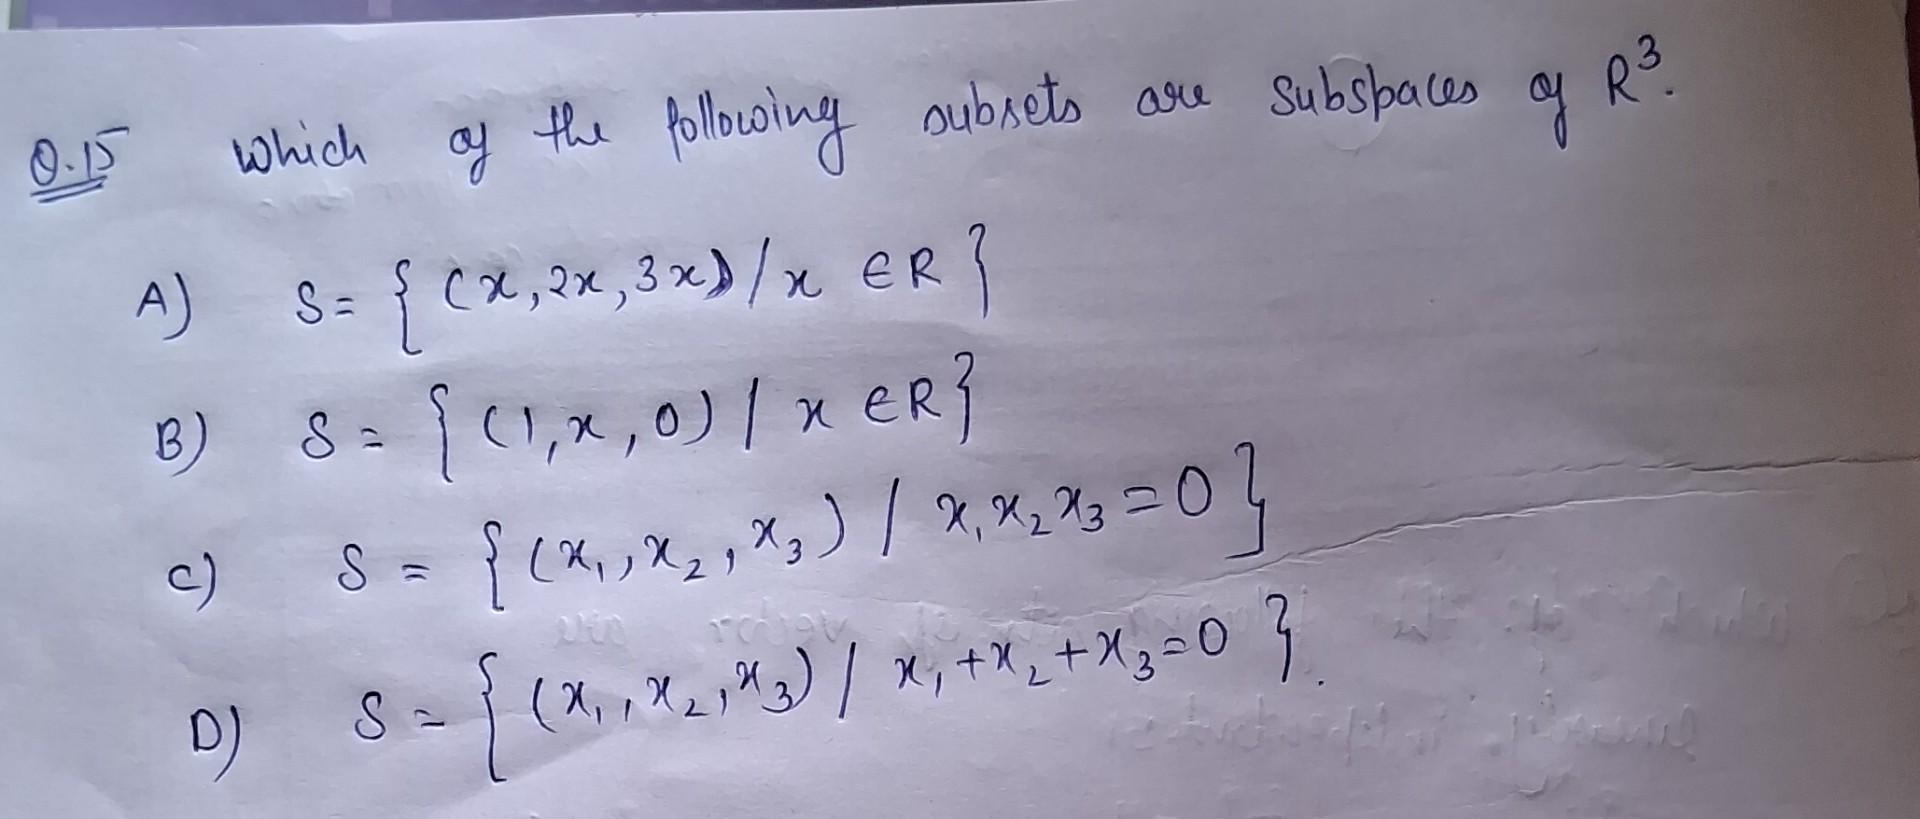 Q.15 Which of the following subsets are subspaces of R³.
A) S= { (x,2x,3x) / x ∈ R }
B) S= { (1,x,0) / x ∈ R }
C) S = { (x₁,x₂,x₃) / x₁x₂x₃=0 }
D) S= { (x₁,x₂,x₃) / x₁+x₂+x₃=0 }.